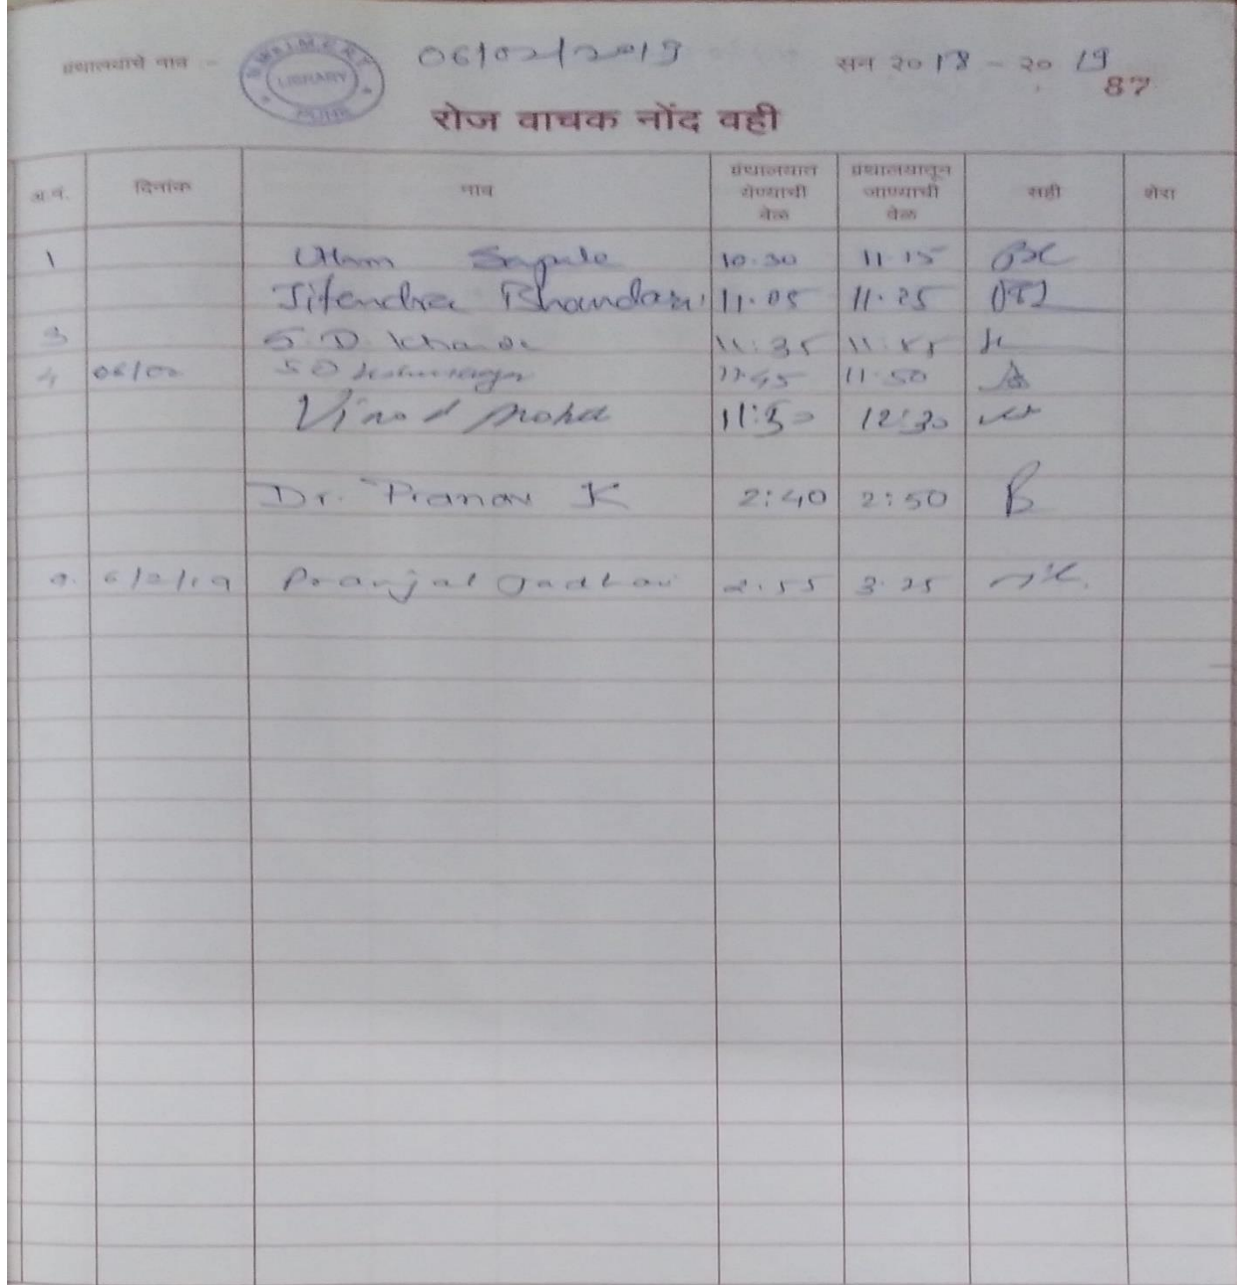 ग्रंथालयाचे नाव :-
LIBRARY
06/02/2019
सन २० 18 - २० 19
87
रोज वाचक नोंद वही
अ.नं. दिनांक नाव ग्रंथालयात येण्याची वेळ ग्रंथालयातून जाण्याची वेळ सही शेरा
1 10.30 11.15
Jitendra Bhandari 11.05 11.25
3 S.D. 11:35
4 06/02 11.45 11.50
Vinod 11:50 12:30
Dr. Pranav K 2:40 2:50
6/2/19 Pranjal Jadhav 2.55 3.25